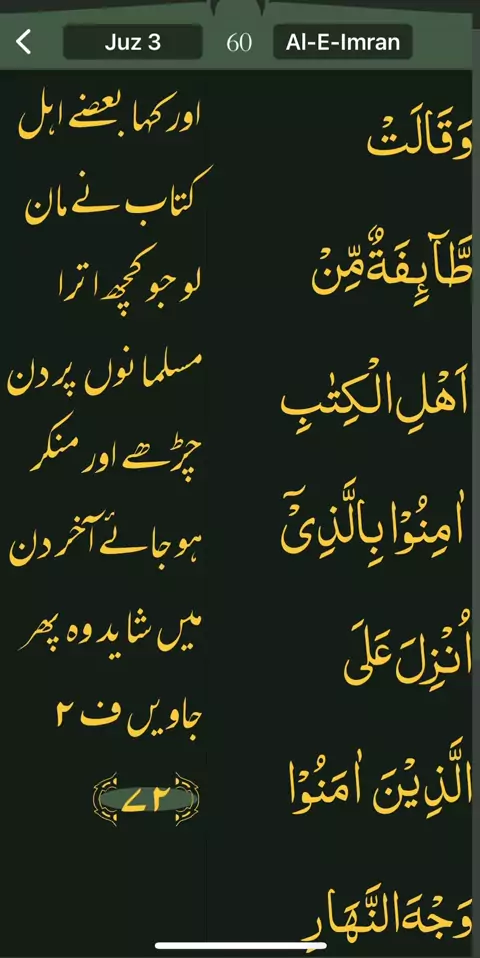 Juz 3 60 Al-E-Imran
وَقَالَتْ
طَّآئِفَةٌ مِّنْ
اَهْلِ الْكِتٰبِ
اٰمِنُوْا بِالَّذِيْۤ
اُنْزِلَ عَلَى
الَّذِيْنَ اٰمَنُوْا
وَجْهَ النَّهَارِ
اور کہا بعضے اہل
کتاب نے مان
لو جو کچھ اترا
مسلمانوں پر دن
چڑھے اور منکر
ہو جائے آخر دن
میں شاید وہ پھر
جاویں ف ۲
۷۲